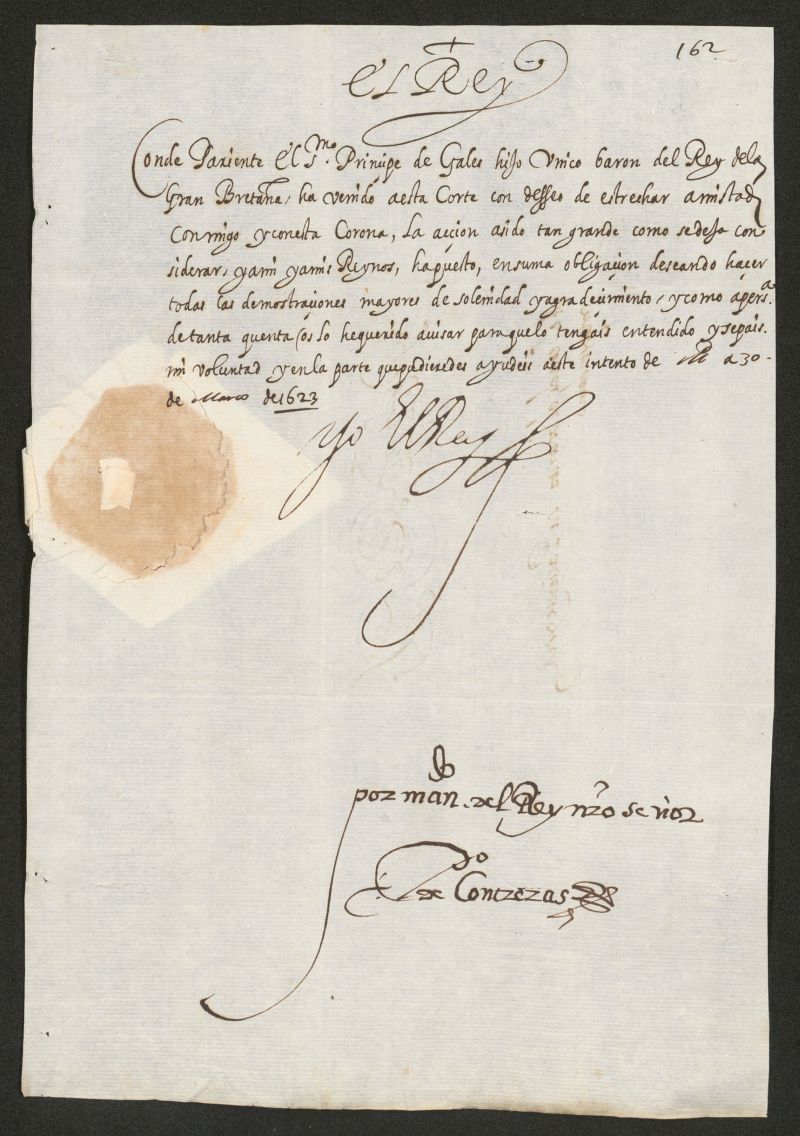 162
El Rey
Conde Pariente El S.mo Principe de Gales hijo Unico baron del Rey dela
Gran Bretaña, ha venido aesta Corte con desseo de estrechar amistad
conmigo yconesta Corona, La accion asido tan grande como sedexa con
siderar, yami yamis Reynos, hapuesto, ensuma obligacion deseando hacer
todas las demostraciones mayores de solenidad yagradecimiento, ycomo apers.a
detanta quenta os lo hequerido avisar paraquelo tengais entendido ysepais
mi voluntad yenla parte quepudieredes ayudeis aeste intento de M.d a 30
de Março de 1623
Yo El Rey
por man.do del Rey nr̃o señor
P.do de Contreras